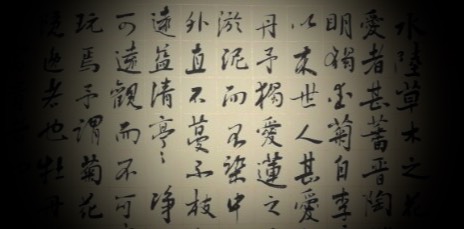 水陸草木之花
愛者甚蕃晋陶
明獨愛菊自李
以來世人甚愛
丹予獨愛蓮之
淤泥而不染中
外直不蔓不枝
遠益清亭々淨
可遠觀而不可
玩焉予謂菊花
逸者也牡丹